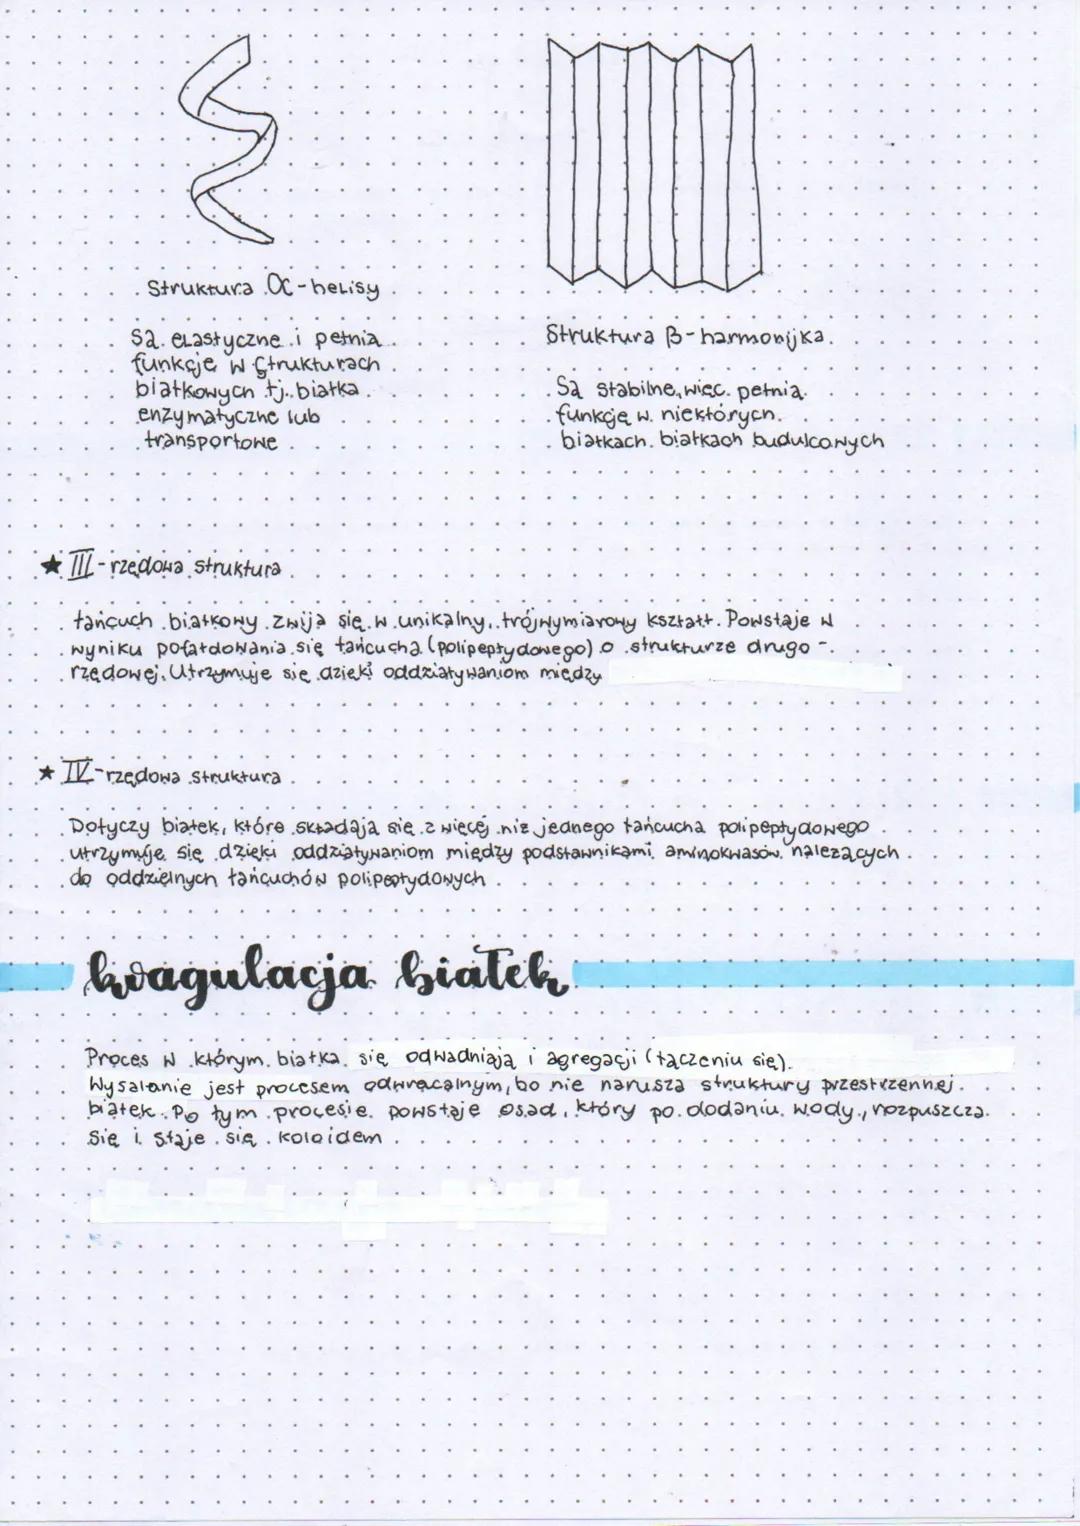 Struktura α-helisy
Są elastyczne i pełnią
funkcję w strukturach
białkowych tj. białka
enzymatyczne lub
transportowe
Struktura β-harmonijka.
Są stabilne, więc pełnią
funkcję w niektórych
białkach białkach budulcowych
★ III-rzędowa struktura
łańcuch białkowy zwija się w unikalny, trójwymiarowy kształt. Powstaje w
wyniku pofałdowania się łańcucha (polipeptydowego) o strukturze drugo-
rzędowej. Utrzymuje się dzięki oddziaływaniom między
★ IV-rzędowa struktura
Dotyczy białek, które składają się z więcej niż jednego łańcucha polipeptydowego
utrzymuje się dzięki oddziaływaniom między podstawnikami aminokwasów należących
do oddzielnych łańcuchów polipeptydowych
koagulacja białek
Proces w którym białka się odwadniają i agregacji (łączeniu się).
Wysalanie jest procesem odwracalnym, bo nie narusza struktury przestrzennej
białek. Po tym procesie powstaje osad, który po dodaniu wody, rozpuszcza
się i staje się koloidem